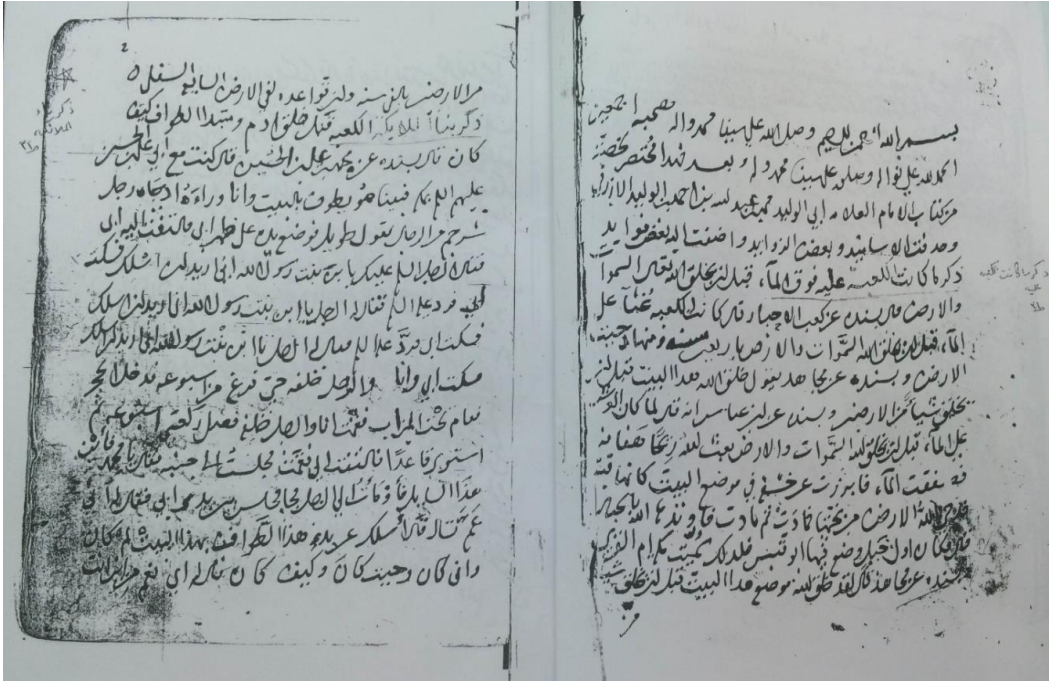 بسم الله الرحمن الرحيم وصلى الله على سيدنا محمد واله وصحبه اجمعين
الحمد لله على نواله وصلى الله على سيدنا محمد واله وبعد فهذا مختصر لخصته
من كتاب الامام العلامه ابي الوليد محمد بن عبد الله بن احمد بن الوليد الازرقي
وحذفت الاسانيد وبعض الزوايد واضفت اليه بعض فوايد
ذكر ما كانت الكعبة عليه فوق الماء قبل ان يخلق الله تعالى السموات
والارض قال بسنده عن كعب الاحبار قال كانت الكعبه غثاء على
الماء قبل ان يخلق الله السموات والارض باربعين سنه ومنها دحيت
الارض وبسنده عن مجاهد يقول خلق الله هذا البيت قبل ان
يخلق شيأ من الارضين وبسنده عن ابن عباس انه قال لما كان العرش
على الماء قبل ان يخلق الله السموات والارض بعث الله ريحا هفافه
فصفقت الماء فابرزت عن خشفة في موضع البيت كانها قبة
فدحى الله الارض من تحتها فمادت ثم مادت فاوتدها الله بالجبال
فكان اول جبل وضع فيها ابو قبيس فلذلك سميت مكه ام القرى
بسنده عن مجاهد قال لقد خلق الله موضع هذا البيت قبل ان يخلق شيا
من
ذكر ما كانت الكعبة
2
من الارض بالفي سنه وان قواعده لفي الارض السابعه السفلى
ذكر بناء الملائكة الكعبه قبل خلق ادم ومبتدا الطواف كيف
كان قال بسنده عن محمد بن علي بن الحسين قال كنت مع ابي علي بن الحسين
عليهم السلام بمكه فبينما هو يطوف بالبيت وانا وراءه اذ جاه رجل
شرجع من الرجال يقول طويل فوضع يده على ظهر ابي فالتفت اليه ابي
فقال الرجل السلام عليك يا ابن بنت رسول الله اني اريد ان اسالك فسكت
ابي فرد عليه السلام فقال له الرجل يا ابن بنت رسول الله اني اريد ان اسالك
فسكت ابي وانا والرجل خلفه حتى فرغ من اسبوعه فدخل الحجر
فقام تحت الميزاب فقمت انا والرجل خلفه فصلى ركعتي اسبوعه ثم
استوى قاعدا فالتفت الي فقمت فجلست الى جنبه فقال يا محمد فاين
هذا السايل فاومات الى الرجل فجا فجلس بين يدي ابي فقال له ابي
عم تسال قال اسالك عن بدء هذا الطواف بهذا البيت لم كان
واني كان وحيث كان وكيف كان فقال له ابي نعم من اين انت
ذكر بناء
الملائكة